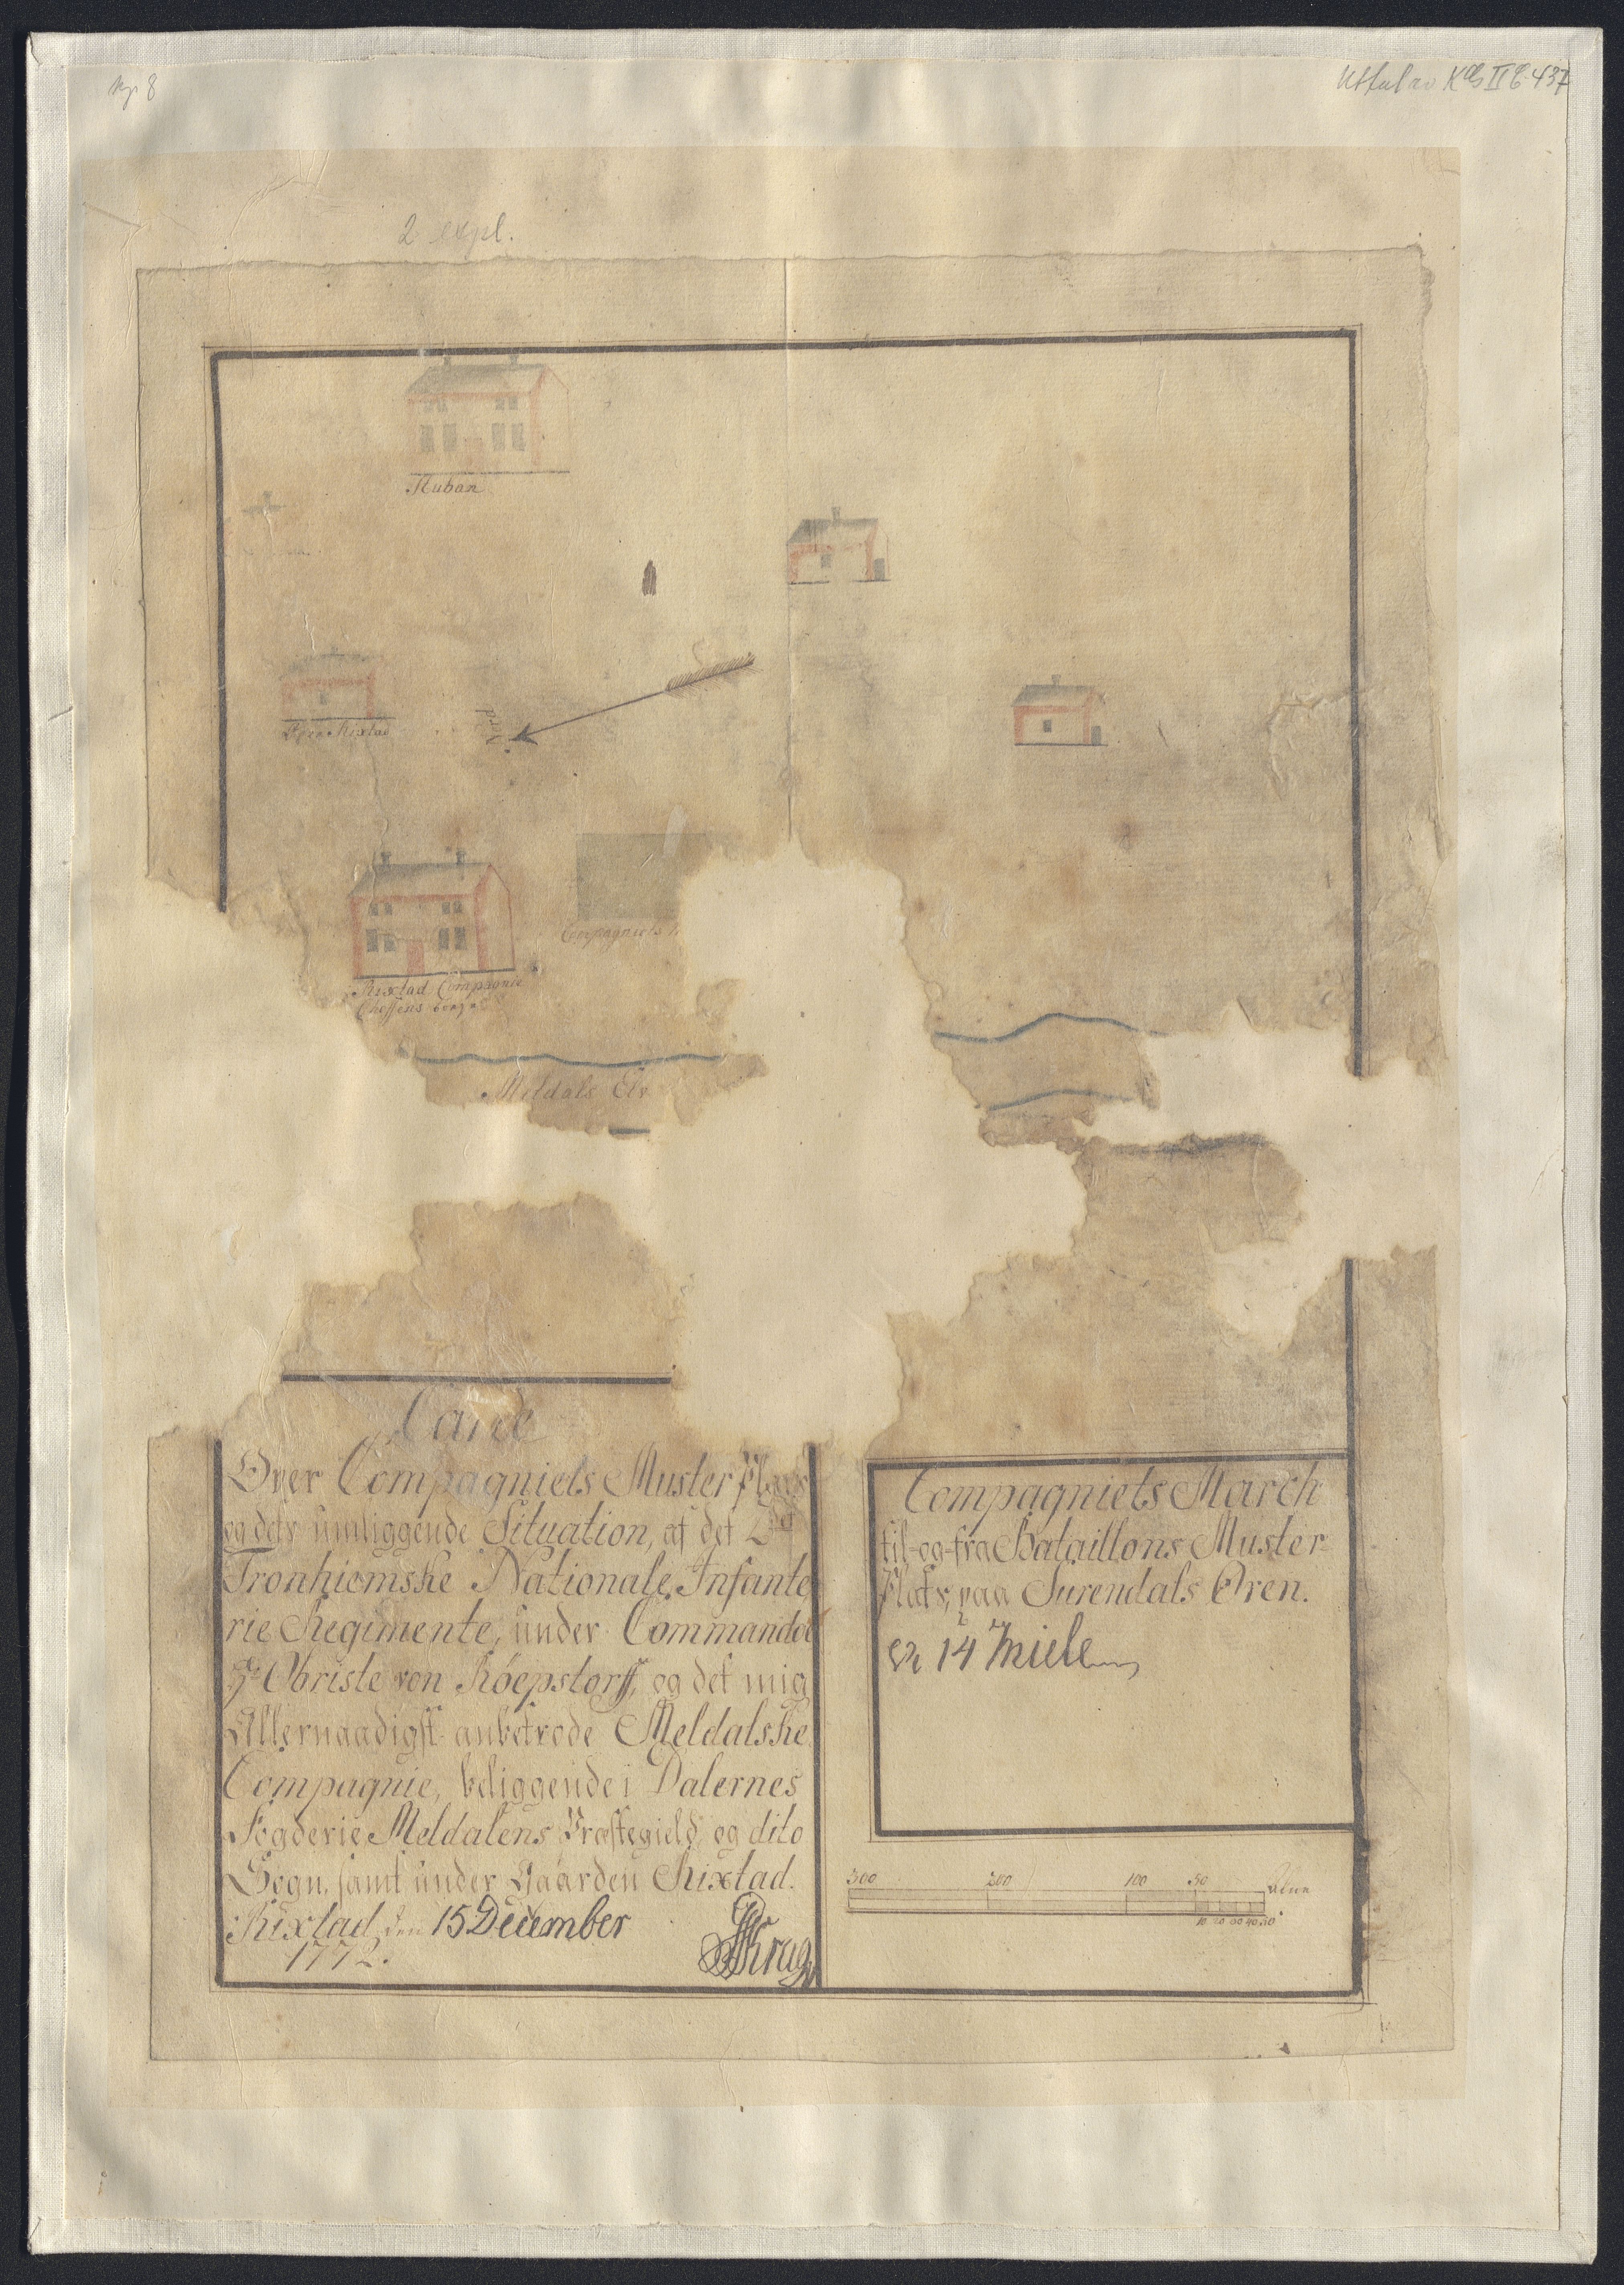 2 expl.
Kuban
Rixtad
Nord
Compagniets
Rixtad Compagnie
Cheffens
Meldals Elv
Carte
Over Compagniets Muster Plads
og dets ümliggende Situation, af det 2det
Tronhiemske Nationale Infante
rie Regimente, ünder Commando
H: Obriste von Röepstorff, og det mig
Allernaadigst anbetrode Meldalske
Compagnie, beliggende i Dalernes
Fogderie Meldalens Præstegield, og dito
Sogn, samt ünder Gaarden Rixtad.
Rixtad, den 15 December
1772.
Krag
Compagniets March
til og fra Bataillons Muster
Plads, paa Surendals Øren.
Er 14 Miile
300 200 100 50 Alen
10 20 30 40 50